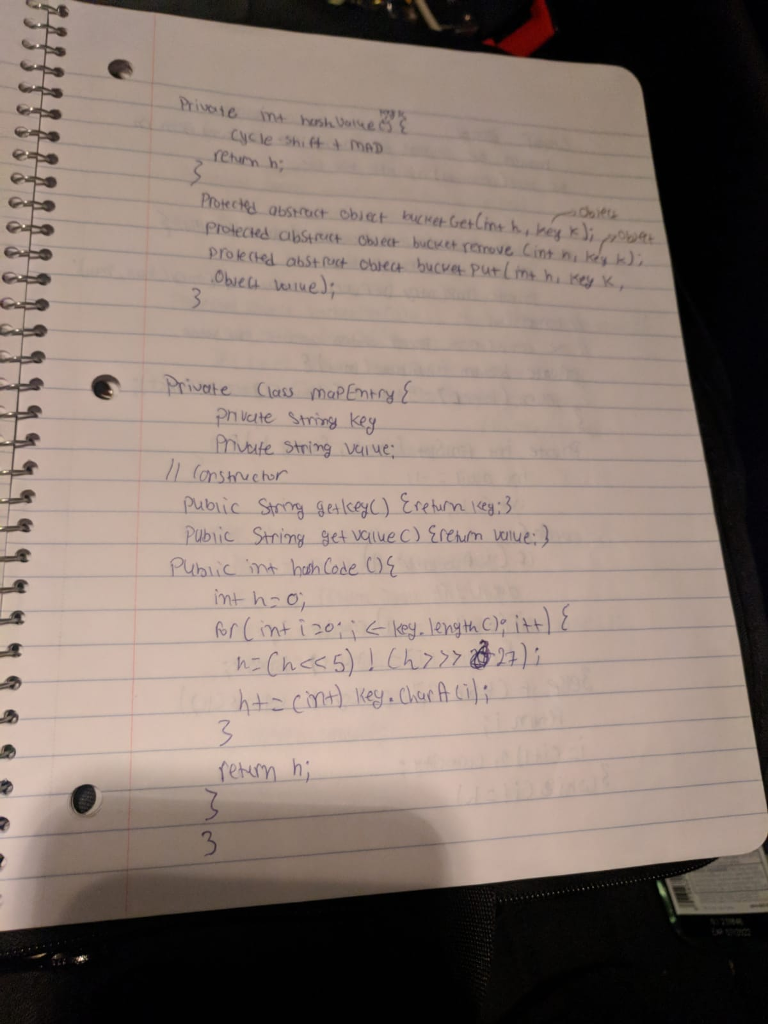 Private int hashValue() {
cycle shift + MAD
return h;
}
Object
Protected abstract object bucketGet(int h, key k);
Object
Protected abstract object bucket remove (int h, key k);
protected abstract object bucket put (int h, key k,
Object value);
}
Private Class mapEntry {
private string key
Private string value;
// Constructor
Public String getkey() {return key;}
Public String get value() {return value;}
Public int hashCode () {
int h=0;
for(int i=0; i <- key.length(); i++) {
h=(h<<5) ! (h>>> 27);
h+=(int) key.charA(i);
}
return h;
}
}